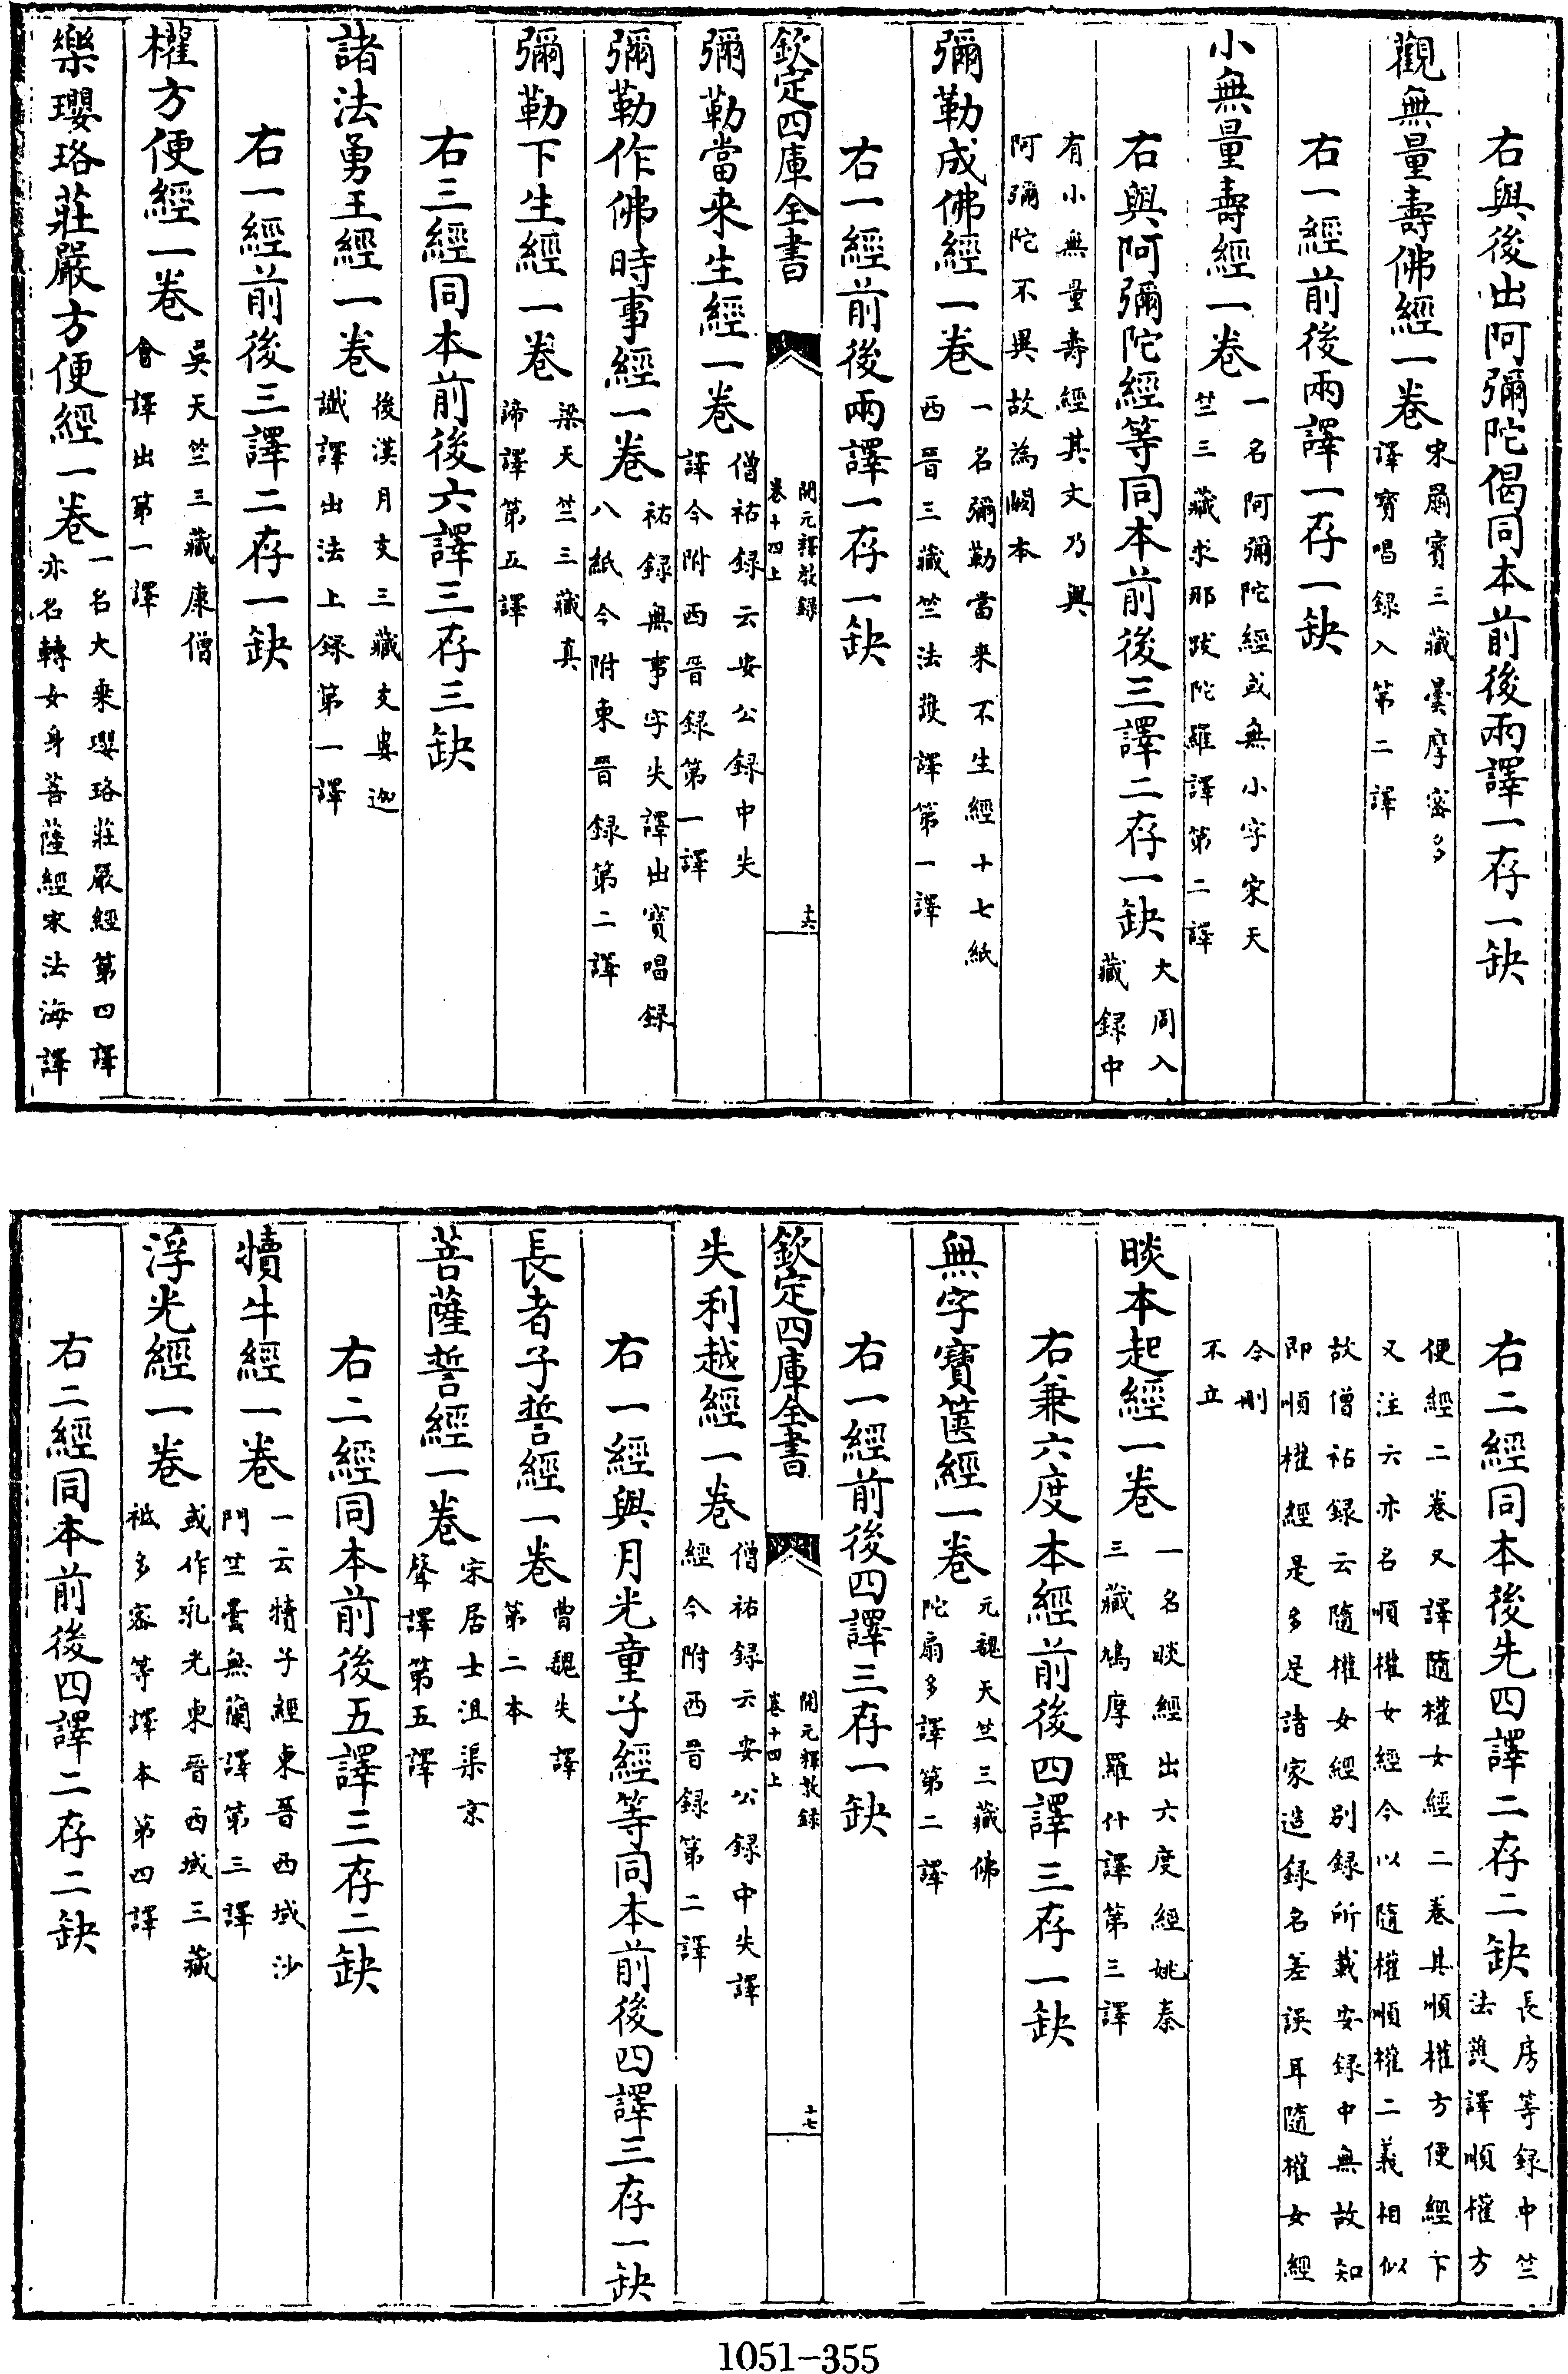 右與後出阿彌陀偈同本前後兩譯一存一缺
觀無量壽佛經一卷宋罽賓三藏曇摩蜜多譯寶唱録入第二譯
右一經前後兩譯一存一缺
小無量壽經一卷一名阿彌陀經或無小字宋天竺三藏求那跋陀羅譯第二譯
右與阿彌陀經等同本前後三譯二存一缺大周入藏録中
有小無量壽經其文乃與阿彌陀不異故為闕本
彌勒成佛經一卷一名彌勒當来下生經十七紙西晉三藏竺法護譯第一譯
右一經前後兩譯一存一缺
欽定四庫全書 開元釋教録卷十四上 十六
彌勒當来生經一卷僧祐録云安公録中失譯今附西晉録第一譯
彌勒作佛時事經一卷祐録無事字失譯出寶唱録八紙今附東晉録第二譯
彌勒下生經一卷梁天竺三藏真諦譯第五譯
右三經同本前後六譯三存三缺
諸法勇王經一卷後漢月支三藏支婁迦讖譯出法上録第一譯
右一經前後三譯二存一缺
權方便經一卷吳天竺三藏康僧會譯出第一譯
樂瓔珞莊嚴方便經一卷一名大乘瓔珞莊嚴經第四譯亦名轉女身菩薩經宋法海譯
右二經同本後先四譯二存二缺長房等録中竺法護譯順權方
便經二卷又譯隨權女經二卷其順權方便經下又注六亦名順權女經今以隨權順權二義相似
故僧祐録云隨權女經別録所載安録中無故知即順權經是多是諸家造録名差誤耳隨權女經
今刪不立
睒本起經一卷一名睒經出六度經姚秦三藏鳩摩羅什譯第三譯
右兼六度本經前後四譯三存一缺
無字寶篋經一卷元魏天竺三藏佛陀扇多譯第二譯
右一經前後四譯三存一缺
欽定四庫全書 開元釋教録卷十四上 十七
失利越經一卷僧祐録云安公録中失譯經今附西晉録第二譯
右一經與月光童子經等同本前後四譯三存一缺
長者子誓經一卷曹魏失譯第二本
菩薩誓經一卷宋居士沮渠京聲譯第五譯
右二經同本前後五譯三存二缺
犢牛經一卷一云犢子經東晉西域沙門竺曇無蘭譯第三譯
浮光經一卷或作乳光東晉西域三藏祇多蜜等譯本第四譯
右二經同本前後四譯二存二缺
1051-355